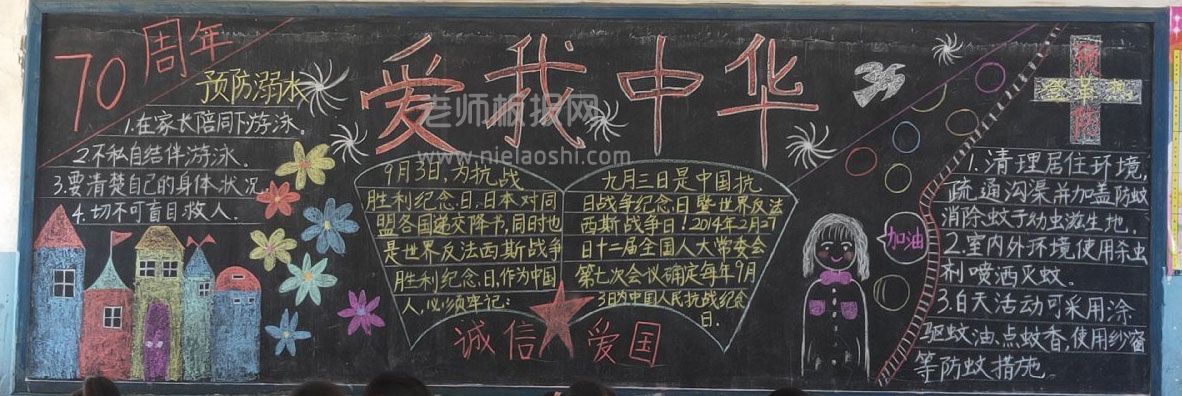 70周年
爱我中华
预防溺水
1.在家长陪同下游泳。
2.不私自结伴游泳.
3.要清楚自己的身体状况
4.切不可盲目救人.
老师板报网
www.nielaoshi.com
9月3日,为抗战
胜利纪念日,日本对同
盟各国递交降书,同时也
是世界反法西斯战争
胜利纪念日,作为中国
人,必须牢记:
九月三日是中国抗
日战争纪念日暨世界反法
西斯战争日!2014年2月27
日十二届全国人大常委会
第七次会议确定每年9月
3日为中国人民抗战纪念
日.
诚信 爱国
加油
预防
登革热
1.清理居住环境,
疏通沟渠并加盖防蚊
消除蚊子幼虫滋生地,
2.室内外环境使用杀虫
剂喷洒灭蚊。
3.白天活动可采用涂
驱蚊油、点蚊香,使用纱窗
等防蚊措施。